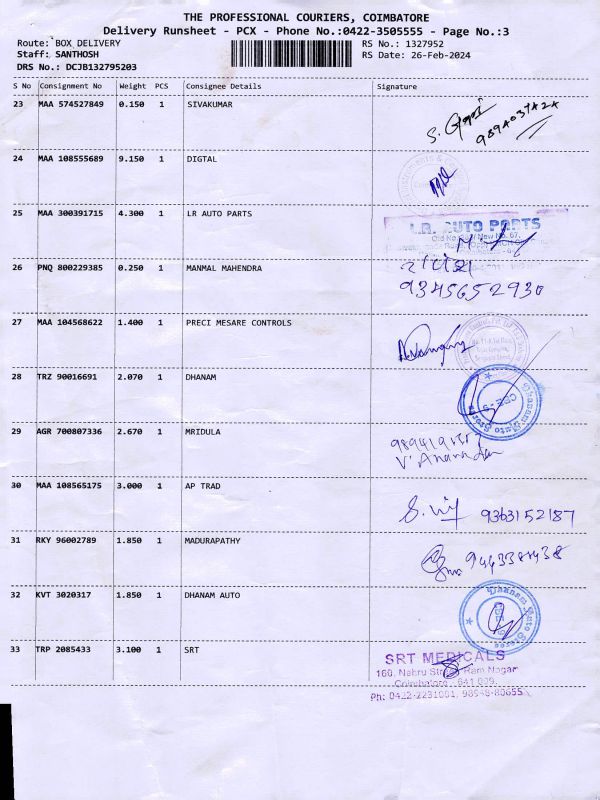 THE PROFESSIONAL COURIERS, COIMBATORE
Delivery Runsheet - PCX - Phone No.:0422-3505555 - Page No.:3
Route: BOX DELIVERY RS No.: 1327952
Staff: SANTHOSH RS Date: 26-Feb-2024
DRS No.: DCJB132795203
S No Consignment No Weight PCS Consignee Details Signature
23 MAA 574527849 0.150 1 SIVAKUMAR
24 MAA 108555689 9.150 1 DIGTAL
25 MAA 300391715 4.300 1 LR AUTO PARTS
L.R. AUTO PARTS
26 PNQ 800229385 0.250 1 MANMAL MAHENDRA
9345652930
27 MAA 104568622 1.400 1 PRECI MESARE CONTROLS
28 TRZ 90016691 2.070 1 DHANAM
Dhanam Auto Stores
CBE-9
29 AGR 700807336 2.670 1 MRIDULA
30 MAA 108565175 3.000 1 AP TRAD
9363152187
31 RKY 96002789 1.850 1 MADURAPATHY
32 KVT 3020317 1.850 1 DHANAM AUTO
Dhanam Auto Stores
33 TRP 2085433 3.100 1 SRT
SRT MEDICALS
160, Nehru Street, Ram Nagar
Coimbatore - 641 009.
Ph: 0422-2231081, 98948-80655